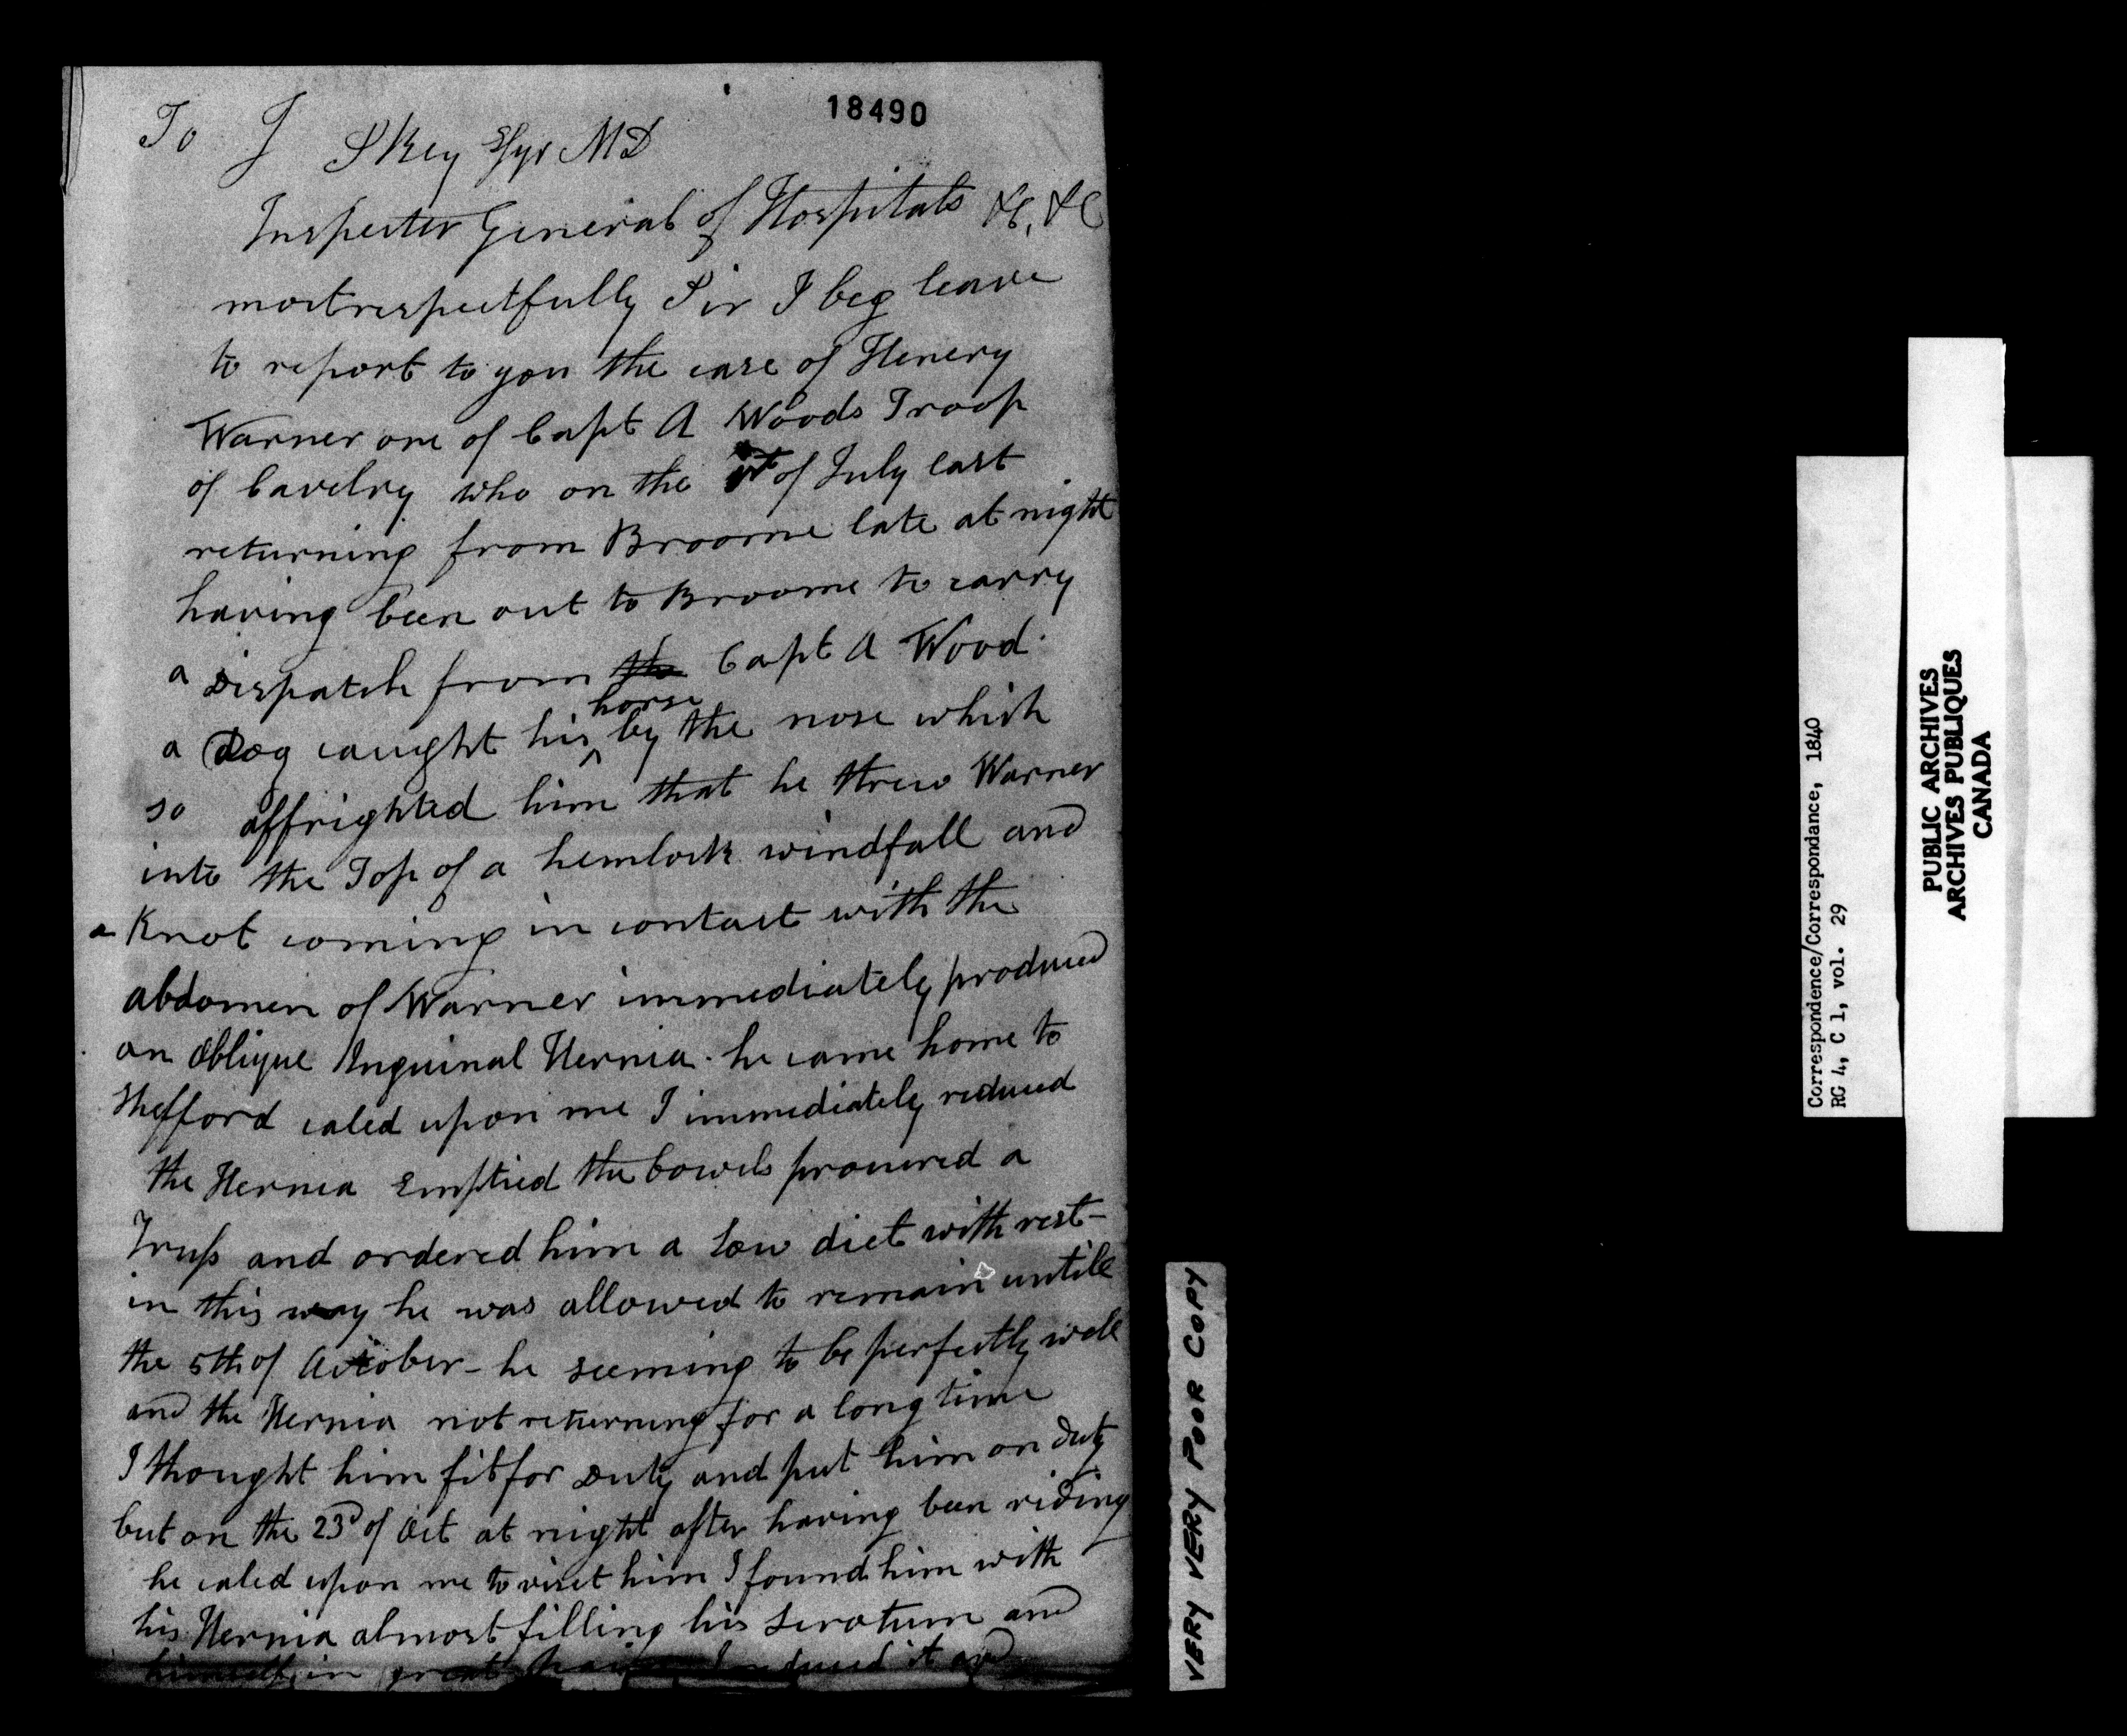 18490
To J Skey Esqr MD
Inspecter General of Hospitals &c, &c
most respectfully Sir I beg leave
to report to you the case of Henery
Warner one of Capt A Woods Troop
of Cavelry who on the of July last
returning from Broome late at night
having been out to Broome to carry
a Dispatch from the Capt A Wood
a Dog caught his horse by the nose which
so affrighted him that he threw Warner
into the Top of a hemlock windfall and
a Knot coming in contact with the
abdomen of Warner immediately produced
an Oblique Inguinal Hernia. he came home to
Shefford caled upon me I immediately reduced
the Hernia Emptied the bowels procured a
Truss and ordered him a low diet with rest-
in this way he was allowed to remain untill
the 5th of October - he seeming to be perfectly well
and the Hernia not returning for a long time
I thought him fit for Duty and put him on Duty
but on the 23d of Oct at night after having been riding
he caled upon me to visit him I found him with
his Hernia almost filling his Scrotum and
himself in great pain I reduced it and
VERY VERY POOR COPY
Correspondence/Correspondance, 1840
RG 4, C 1, vol. 29
PUBLIC ARCHIVES
ARCHIVES PUBLIQUES
CANADA